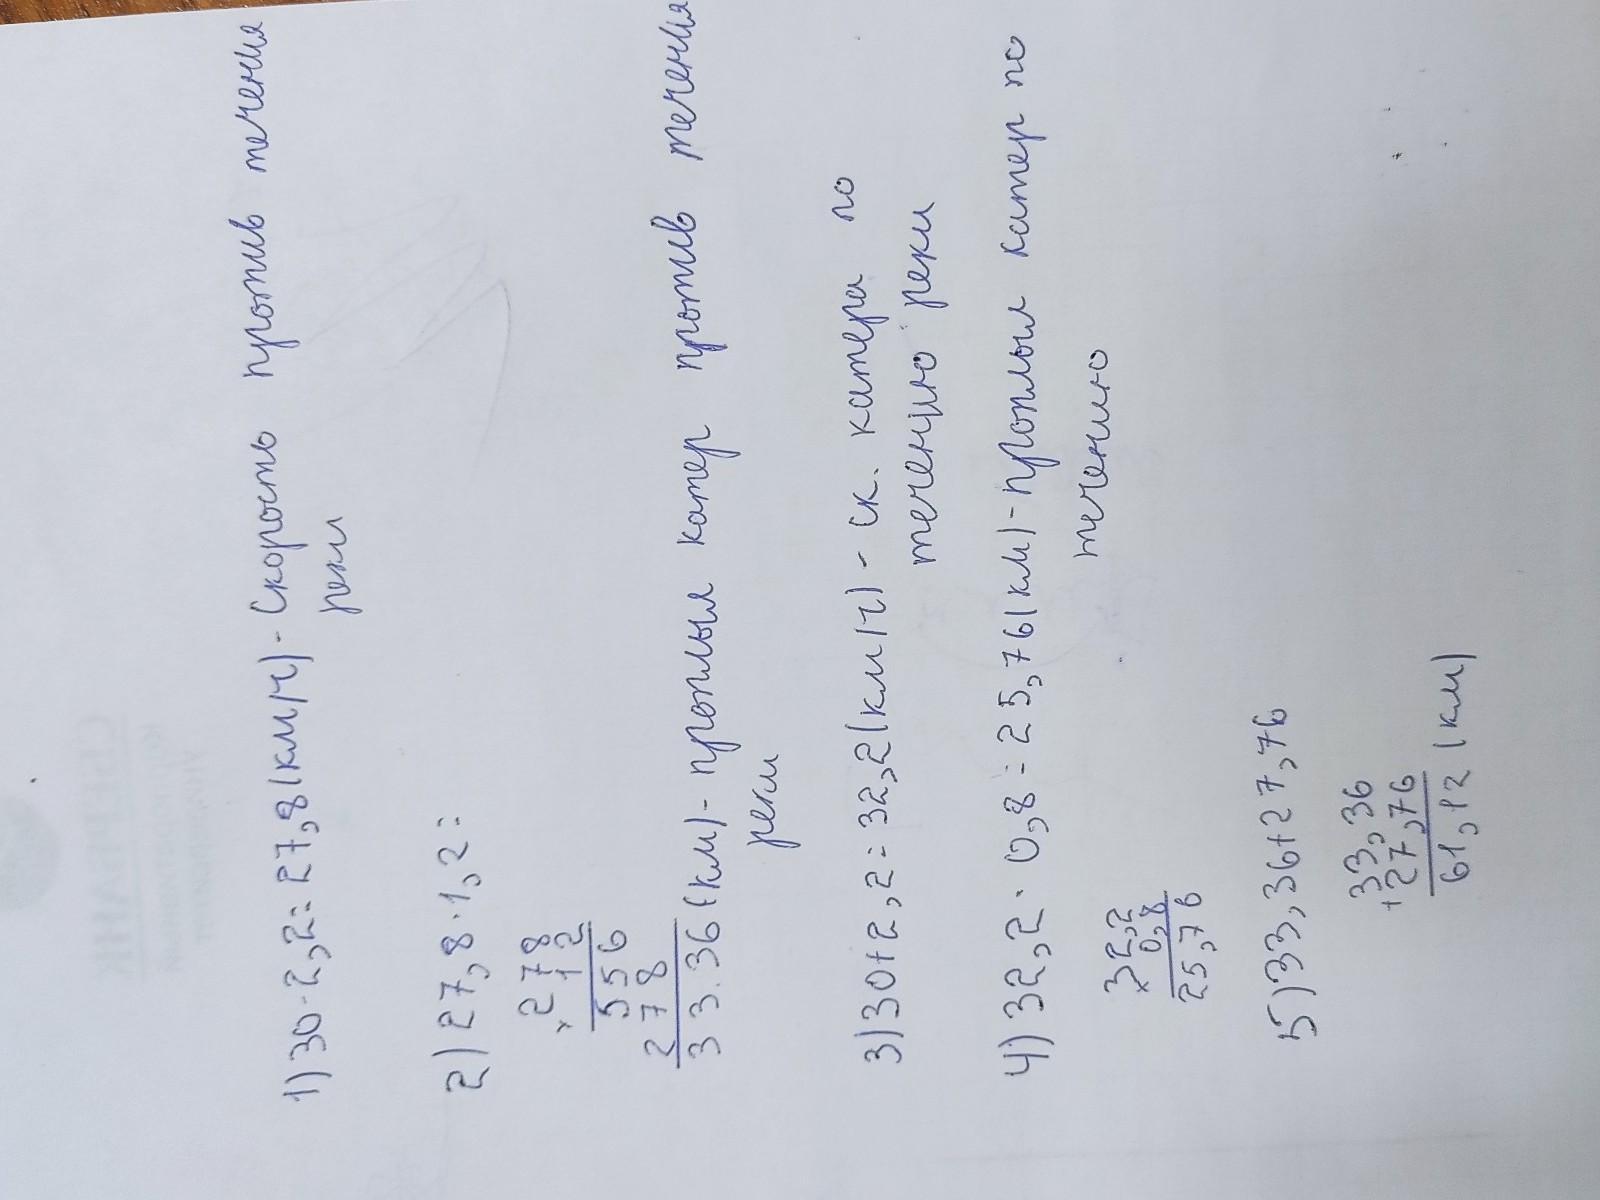 1) 30-2,2=27,8(км/ч)- Скорость против течения
реки
2) 27,8·1,2=
× 278
12
556
278
33.36(км)- проплыл катер против течения
реки
3) 30+2,2=32,2(км/ч)- ск. катера по
течению реки
4) 32,2·0,8=25,76(км)-проплыл катер по
течению
× 32,2
0,8
25,76
5) 33,36+27,76
+ 33,36
27,76
61,12 (км)